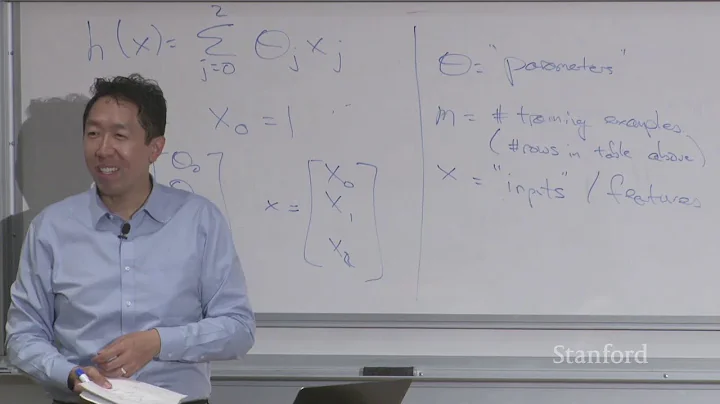 h(x) = Σ j=0 2 θj xj
x0 = 1
θ0
x = [x0
x1
x2]
θ = "parameters"
m = # training examples
(# rows in table above)
x = "inputs" / features
Stanford